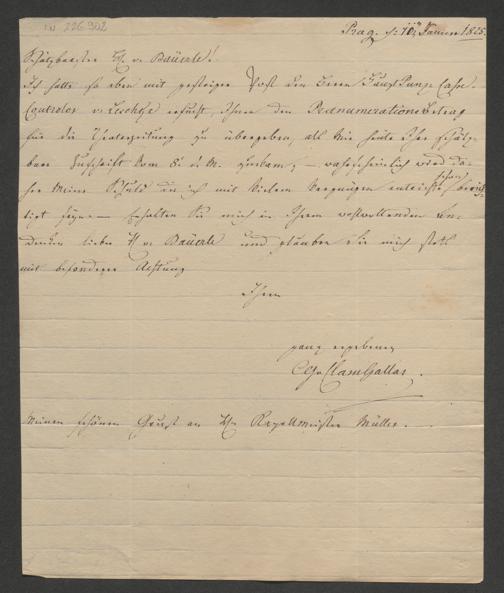 I.N. 226.902
Prag, d: 10t Januar 1825.
Schätzbarster H. v. Bäuerle!
Ich hatte so eben mit gestriger Post den Herrn
Controlor v. ersucht, Ihnen den Pränumerations Betrag
für die Theaterzeitung zu übergeben, als mir heute Ihre schätz-
bare Zuschrift vom 5. d. M. zukam; – wahrscheinlich wird da-
her meine Schuld die ich mit vielem Vergnügen entrichte schon berich-
tigt seyn – erhalten Sie mich in Ihrem wohlwollenden An-
denken lieber H v. Bäuerle und glauben Sie mich stets
mit besonderer Achtung
Ihren
ganz ergebenen
CGr ClamGallas.
Meinen schönen Gruß an Hn Kapellmeister Müller.